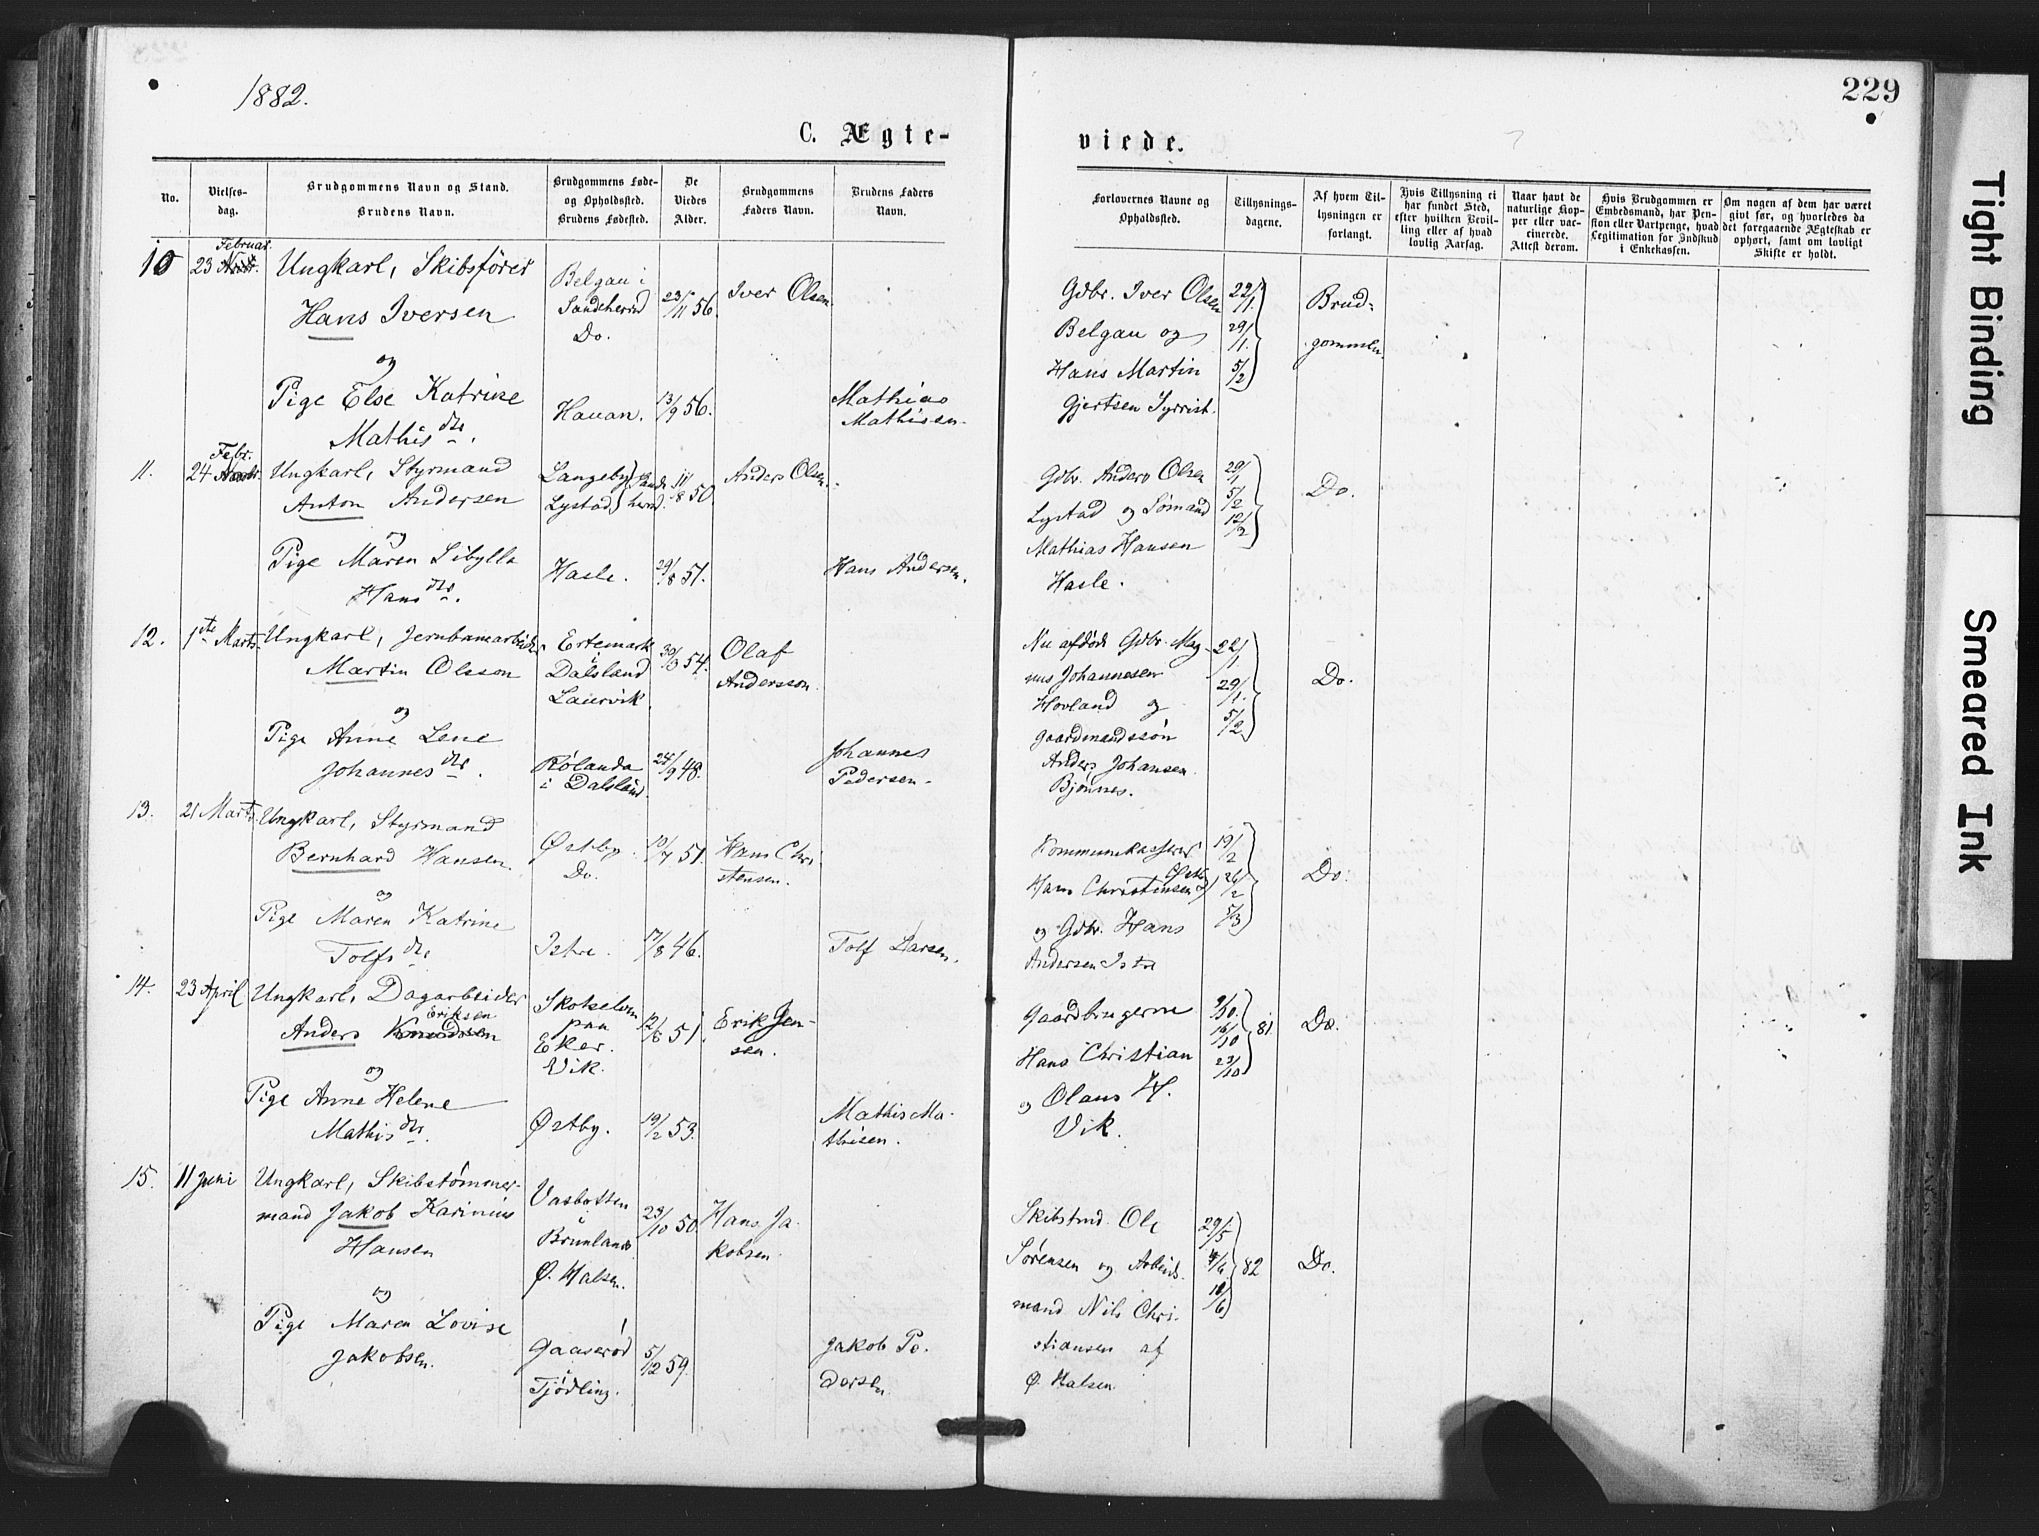 1882.
229
C. Ægte-
viede.
No.
Vielses-
dag.
Brudgommens Navn og Stand.
Brudens Navn.
Brudgommens Føde-
og Opholdssted.
Brudens Fødested.
De
Viedes
Alder.
Brudgommens
Faders Navn.
Brudens Faders
Navn.
Forlovernes Navne og
Opholdssted.
Tillysnings-
dagene.
Af hvem Til-
lysningen er
forlangt.
Hvis Tillysning ei
har fundet Sted,
efter hvilken Bevil-
ling eller af hvad
lovlig Aarsag.
Naar havt de
naturlige Kop-
per eller vac-
cinerede.
Attest derom.
Hvis Brudgommen er
Embedsmand, har Pen-
sion eller Vartpenge, hvad
Legitimation for Indskud
i Enkekassen.
Om nogen af dem har været
givt før, og hvorledes da
det foregaaende Ægteskab er
ophørt, samt om lovligt
Skifte er holdt.
10
Februar.
23
Ungkarl, Skibsfører
Hans Iversen
og
Pige Else Katrine
Mathisdtr.
Belgau i
Sandeherred
Do.
Hauan.
23/11 56.
13/9 56.
Iver Olsen
Mathias
Mathisen.
Gdbr. Iver Olsen
Belgau og
Hans Martin
Gjertsen Syrrist.
22/1.
29/1.
5/2
Brud-
gommen.
11.
Febr.
24
Ungkarl, Styrmand
Anton Andersen
og
Pige Maren Sibylla
Hansdtr.
Langeby } Sande
Lystad } herred.
Hasle.
11/8 50.
29/8 51.
Anders Olsen.
Hans Andersen.
Gdbr. Anders Olsen
Lystad og Sømand
Mathias Hansen
Hasle.
29/1
5/2
12/2
Do.
12.
1ste Marts.
Ungkarl, Jernbanearbeider
Martin Olsson
og
Pige Anne Lene
Johannesdtr.
Ertemark
i
Dalsland
Laurvik.
Rølanda
i Dalsland.
30/3 54.
24/9 48.
Olaf
Andersson.
Johannes
Pedersen.
Nu afdøde Gdbr. Mag-
nus Johannesen
Hovland og
gaardmandssøn
Anders Johansen
Bjønnes.
22/1.
29/1.
5/2
Do.
13.
21 Marts.
Ungkarl, Styrmand
Bernhard Hansen.
og
Pige Maren Katrine
Tolfsdtr.
Østby.
Do.
Istre.
10/7 51.
17/8 46.
Hans Chri
stensen.
Tolf Larsen.
Kommunekasserer
Hans Christensen Østby
og Gdbr. Hans
Andersen Istre
19/2
26/2
5/3
Do.
14.
23 April
Ungkarl, Dagarbeider
Eriksen
Anders Knudsen
og
Pige Anne Helene
Mathisdtr.
Skotselven
paa
Eker.
Vik.
Østby.
12/8 51.
19/2 53.
Erik Jen-
sen.
Mathis Ma-
thisen.
Gaardbrugerne
Hans Christian
og Olaus H.
Vik.
9/10.
16/10
23/10
81.
Do.
15.
11 Juni
Ungkarl, Skibstømmer-
mand Jakob Karinius
Hansen
og
Pige Maren Lovise
Jakobsen.
Vasbotten
i
Brunlanes
Ø. Halsen.
Gaaserød
i
Tjødling.
23/10 50.
5/12 59.
Hans Ja-
kobsen.
Jakob Pe-
dersen.
Skibstmd. Ole
Sørensen og Arbeids-
mand Nils Chri-
stiansen af
Ø. Halsen.
29/5
4/6
11/6
82
Do.
Tight Binding
Smeared Ink